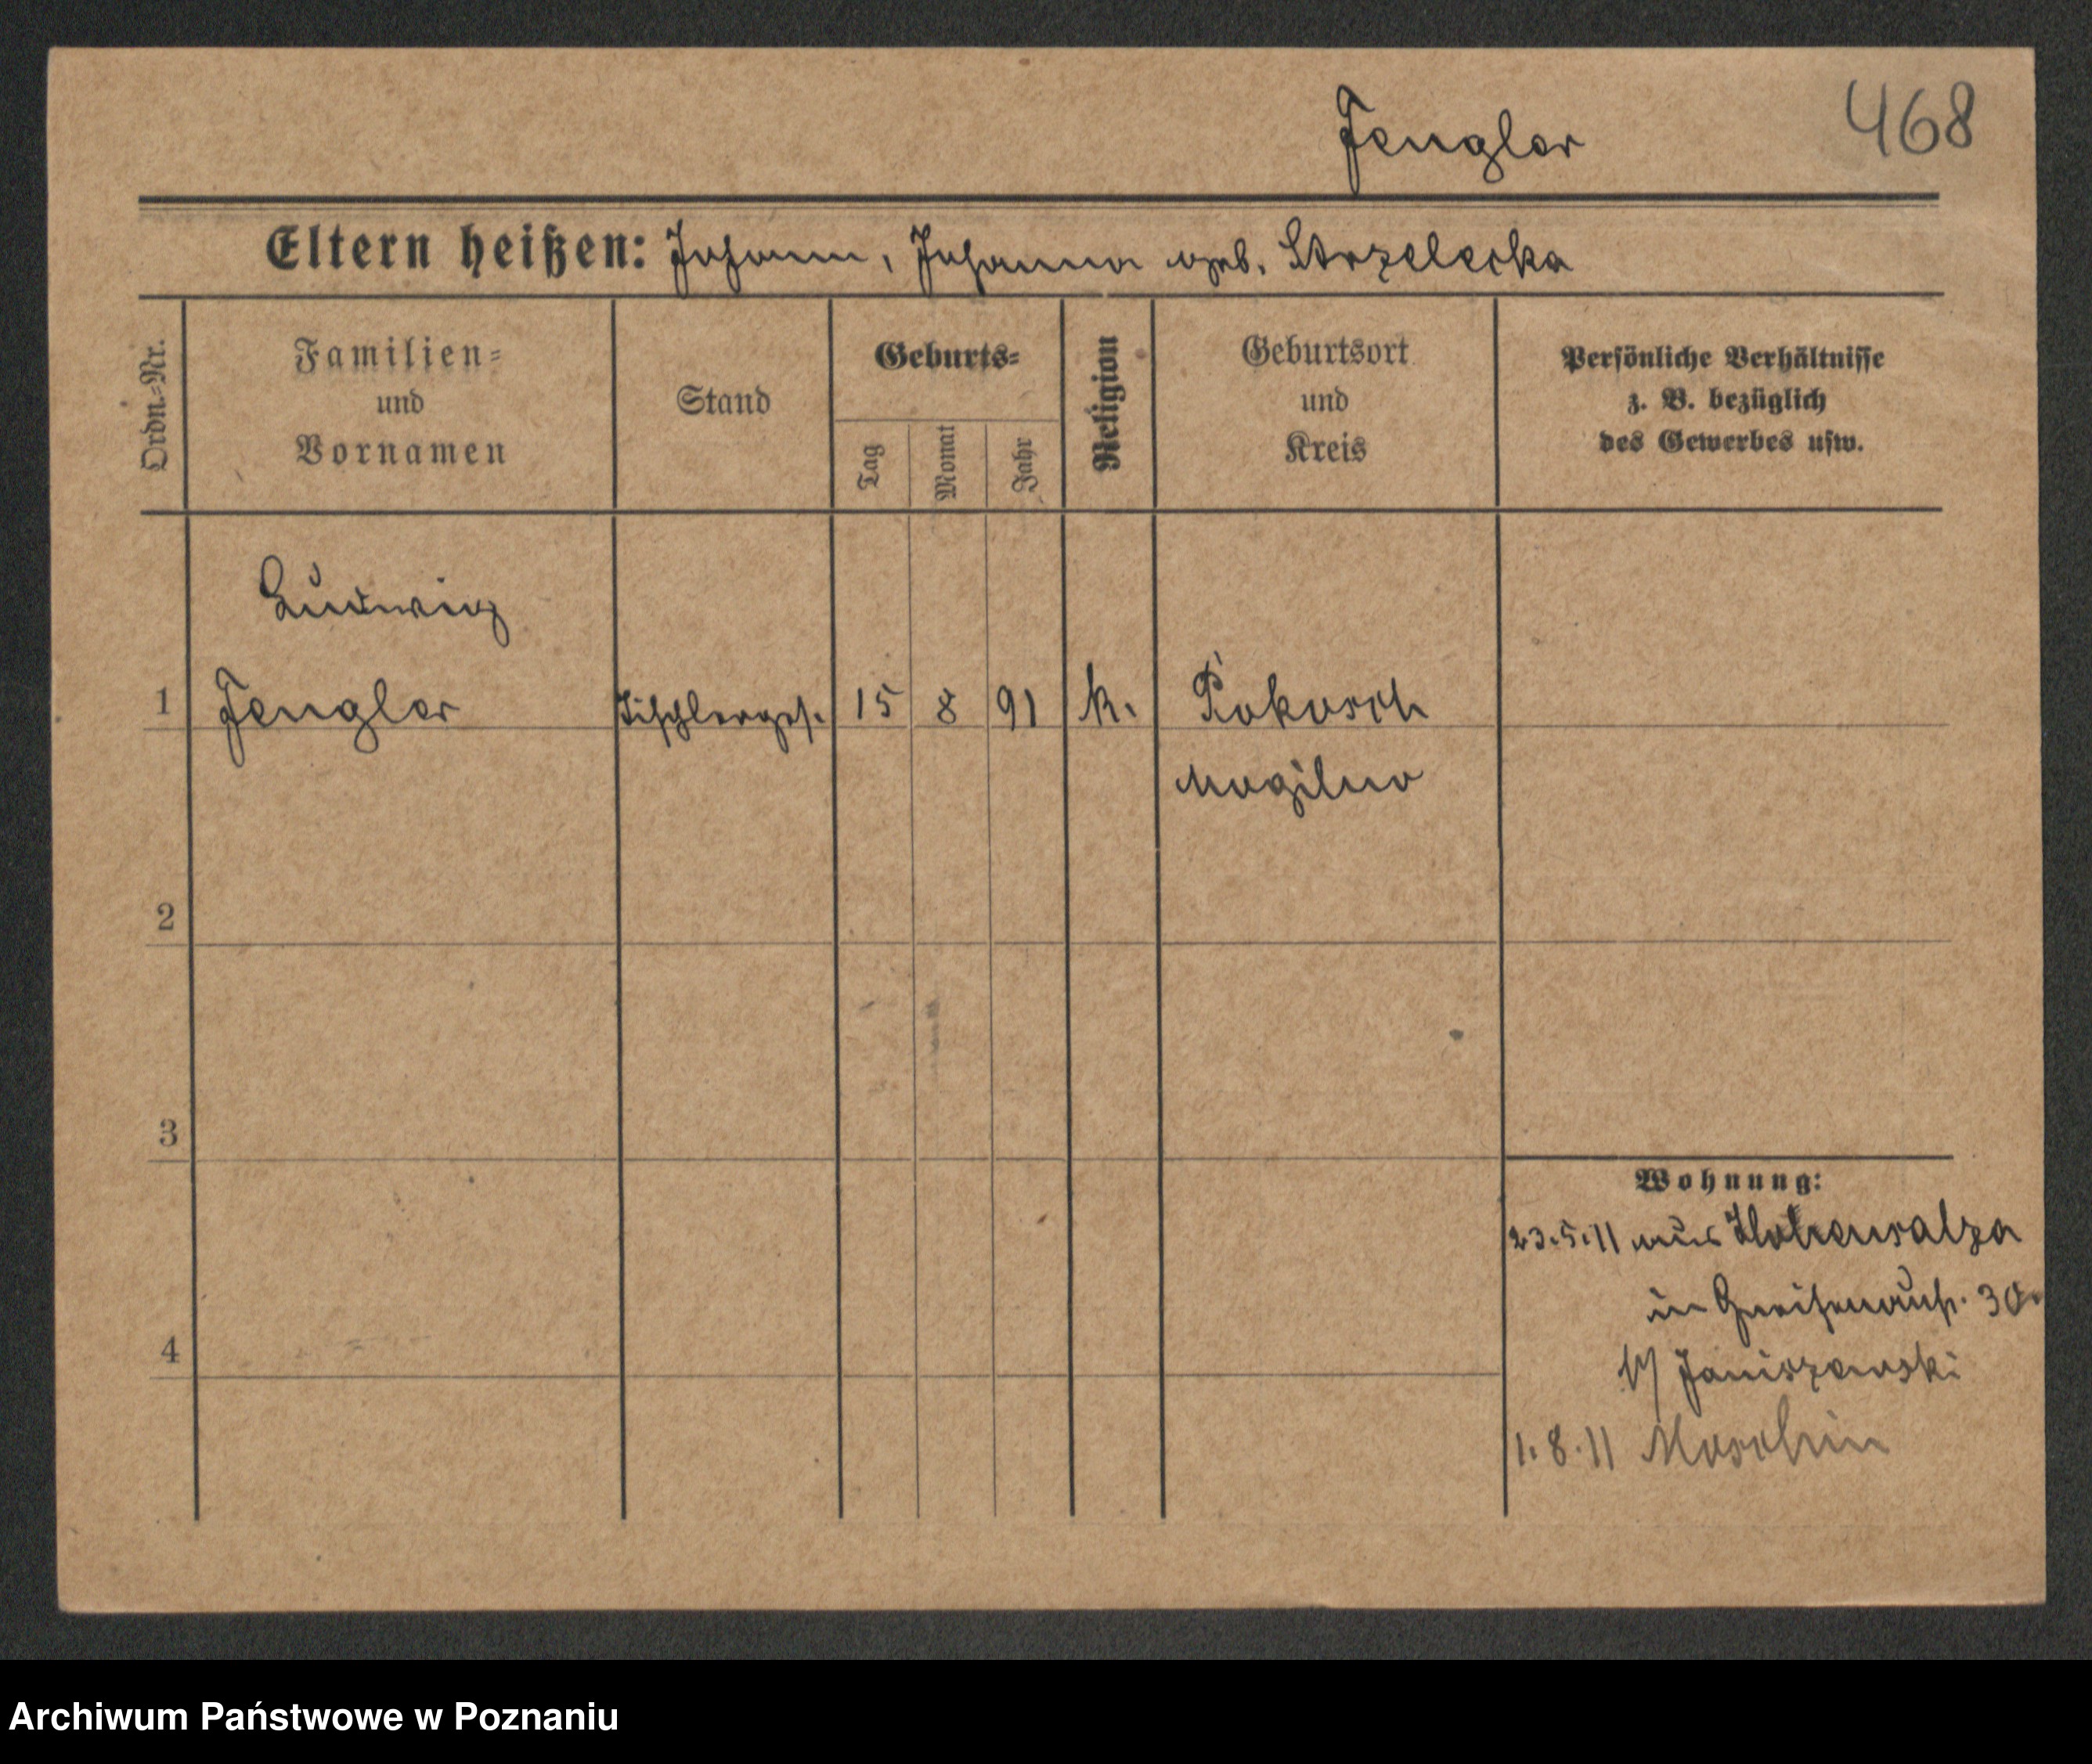 Fengler 468
Eltern heißen: Johann, Johanna geb. Strzelecka
Ordn.-Nr.
Familien-
und
Vornamen
Stand
Geburts-
Tag
Monat
Jahr
Religion
Geburtsort
und
Kreis
Persönliche Verhältnisse
z. B. bezüglich
des Gewerbes usw.
Ludwig
1 Fengler Tischlerges. 15 8 91 k. Pokosch
Mogilno
2
3
4
Wohnung:
23.5.11 aus Hohensalza
in Gneisenaustr. 30
b/ Janiszewski
1.8.11 Moschin
Archiwum Państwowe w Poznaniu